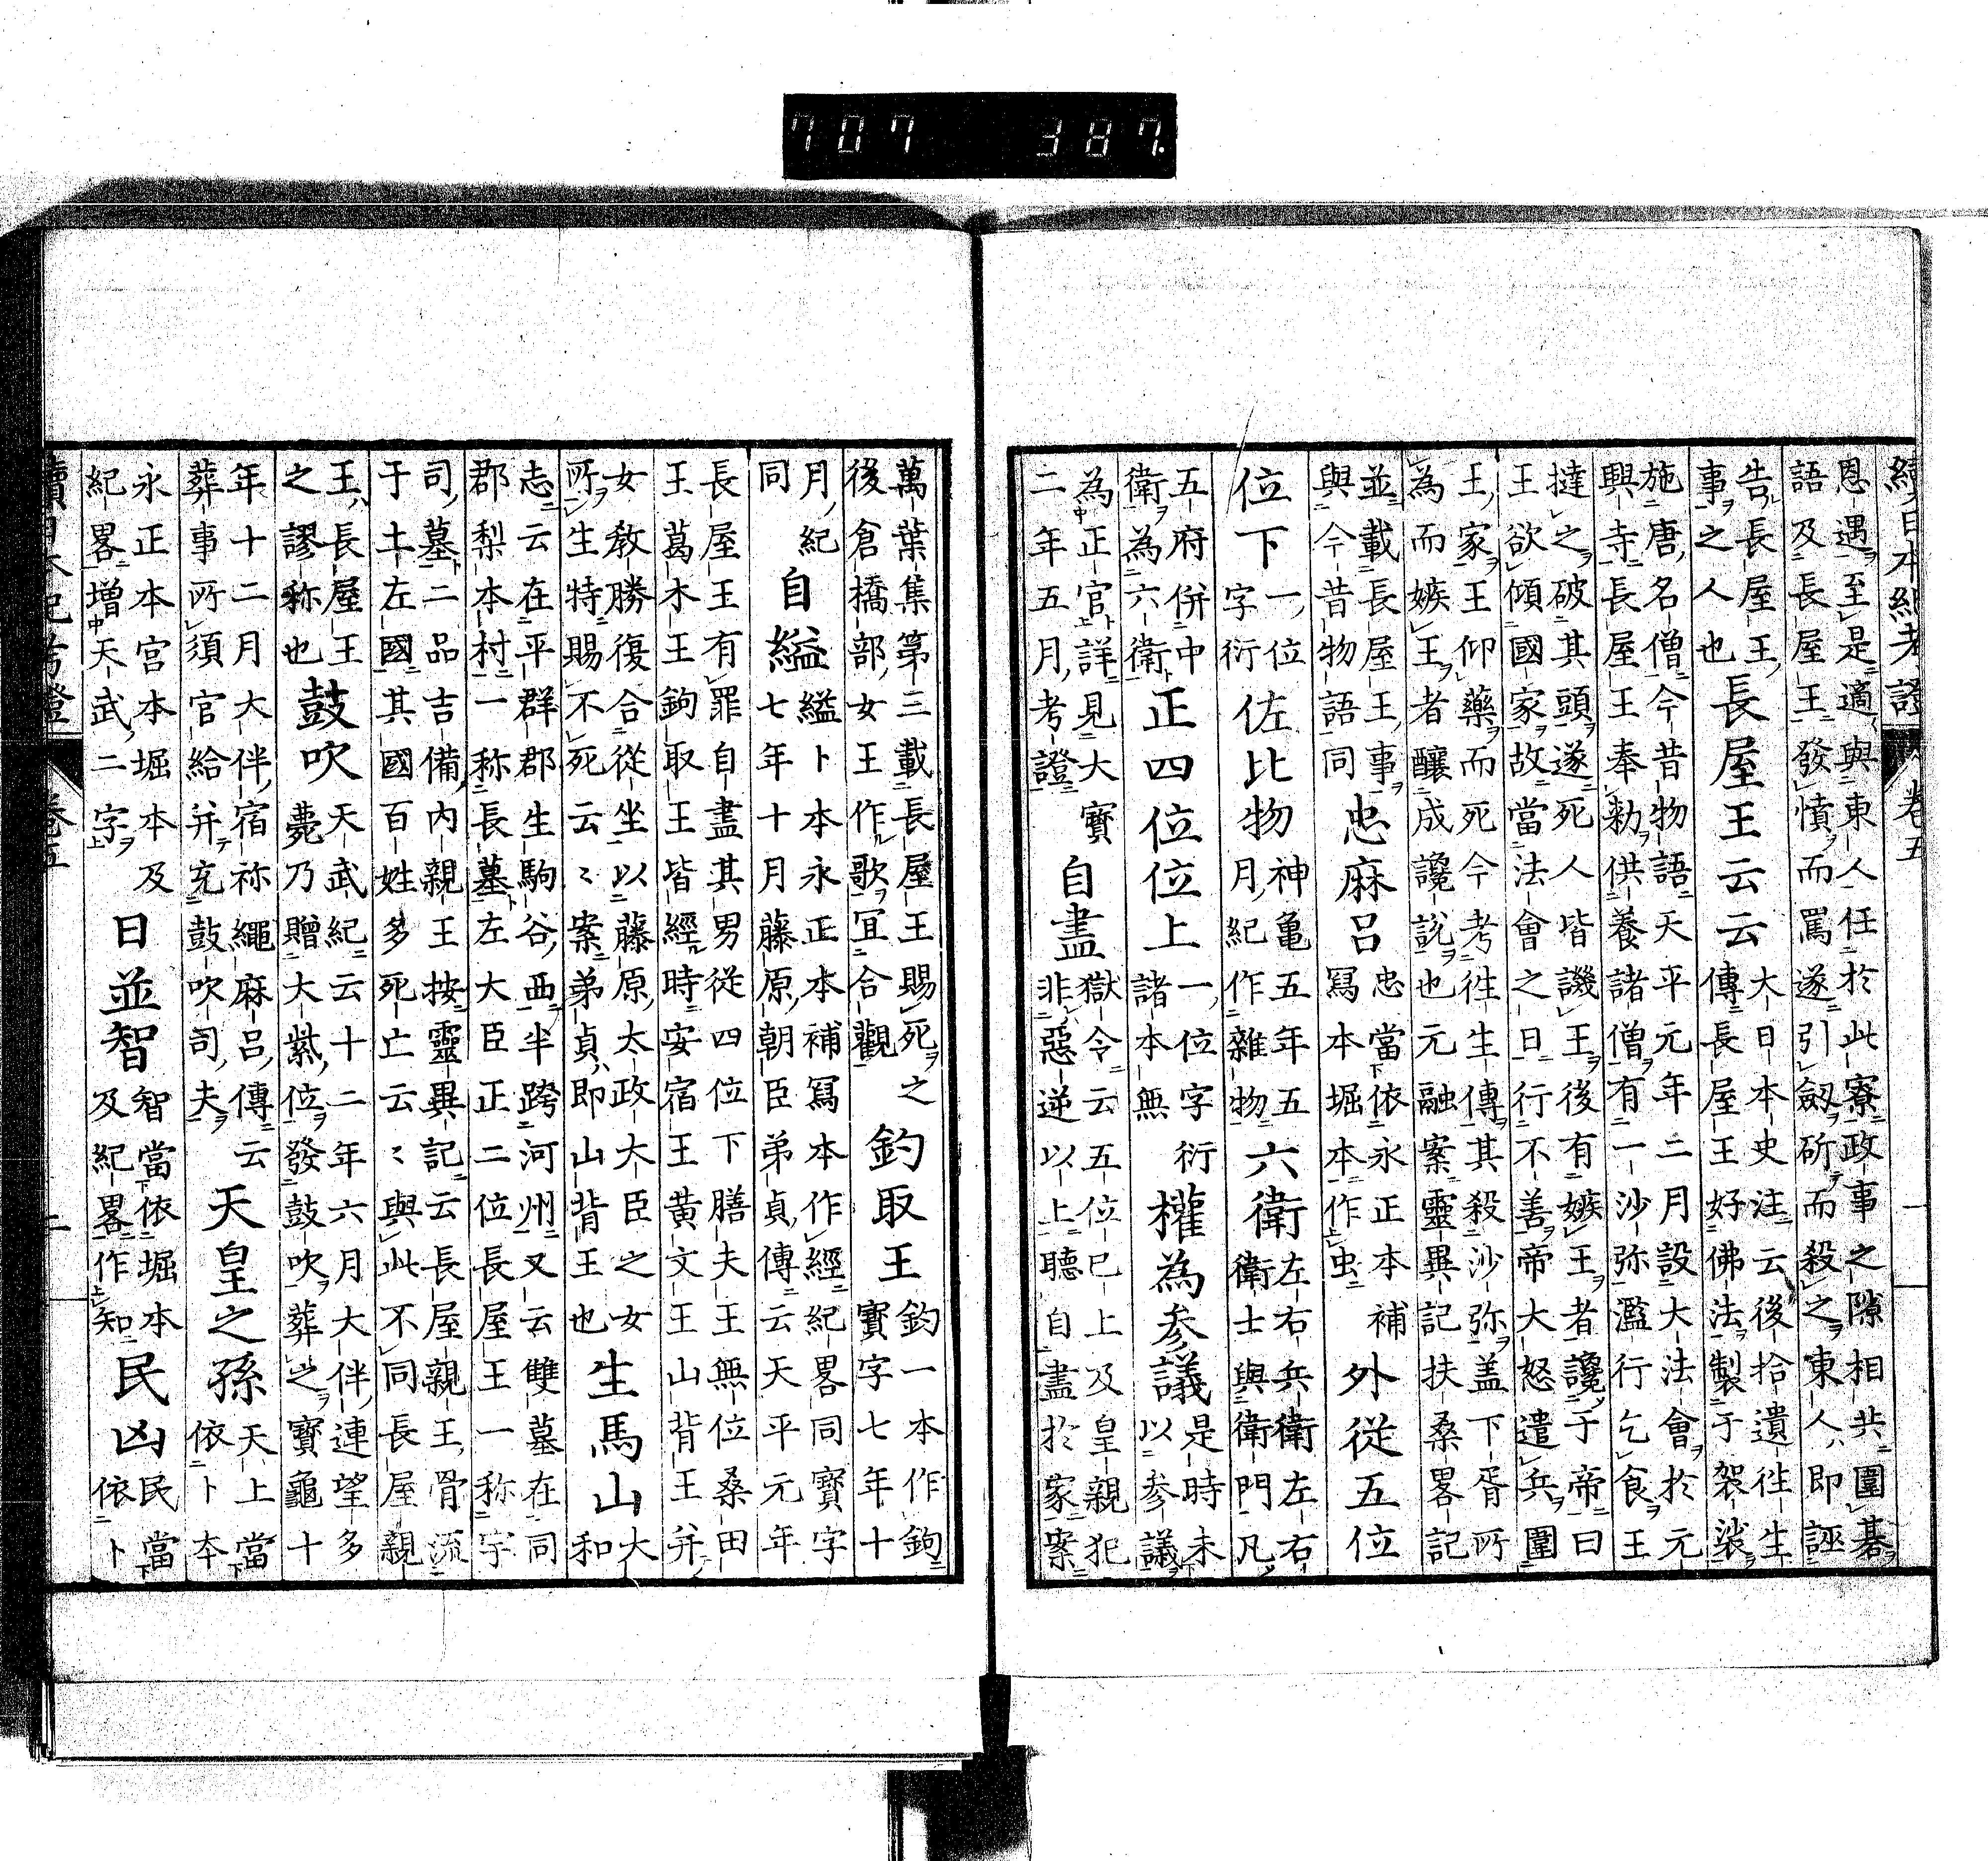 707 387.
續日本紀考證 卷五 一
恩遇至是適與東人任於此寮政事之隙相共圍碁
語及長屋王發憤而罵遂引劔斫而殺之東人即誣
告長屋王
事之人也
長屋王云云
大日本史注云後拾遺往生
傳長屋王好佛法製于袈裟
施唐名僧今昔物語天平元年二月設大法會於元
興寺長屋王奉勅供養諸僧有一沙弥濫行乞食王
撻之破其頭遂死人皆譏王後有嫉王者讒于帝曰
王欲傾國家故當法會之日行不善帝大怒遣兵圍
王家王仰藥而死今考往生傳其殺沙弥盖下胥所
為而嫉王者釀成讒說也元融案靈異記扶桑畧記
並載長屋王事
與今昔物語同
忠麻呂
忠當依永正本補
寫本堀本作虫
外從五位
位下
一位
字衍
佐比物
神亀五年五
月紀作雜物
六衛
左右兵衛左右
衛士與衛門凡
五府併中
衛為六衛
正四位位上
一位字衍
諸本無
權為參議
是時未
以參議
為正官詳見大寶
二年五月考證
自盡
獄令云五位已上及皇親犯
非惡逆以上聽自盡於家案
萬葉集第三載長屋王賜死之
後倉橋部女王作歌宜合觀
釣取王
釣一本作鉤
寳字七年十
月紀
同
自縊
縊卜本永正本補寫本作經紀畧同寳字
七年十月藤原朝臣弟貞傳云天平元年
長屋王有罪自盡其男從四位下膳夫王無位桑田
王葛木王鉤取王皆經時安宿王黃文王山背王并
女敎勝復合從坐以藤原太政大臣之女
所生特賜不死云〻案弟貞即山背王也
生馬山
大
和
志云在平群郡生駒谷西半跨河州又云雙墓在同
郡梨本村一称長墓左大臣正二位長屋王一称宇
司墓二品吉備內親王按靈異記云長屋親王骨流
于土左國其國百姓多死亡云〻與此不同長屋親
王長屋王
之謬称也
鼓吹
天武紀云十二年六月大伴連望多
薨乃贈大紫位發鼓吹葬之寳龜十
年十二月大伴宿祢繩麻呂傳云
葬事所須官給并充鼓吹司夫
天皇之孫
天上當
依卜本
永正本宮本堀本及
紀畧增天武二字
日並智
智當依堀本
及紀畧作知
民凶
民當
依卜
續日本紀考證 卷五 二